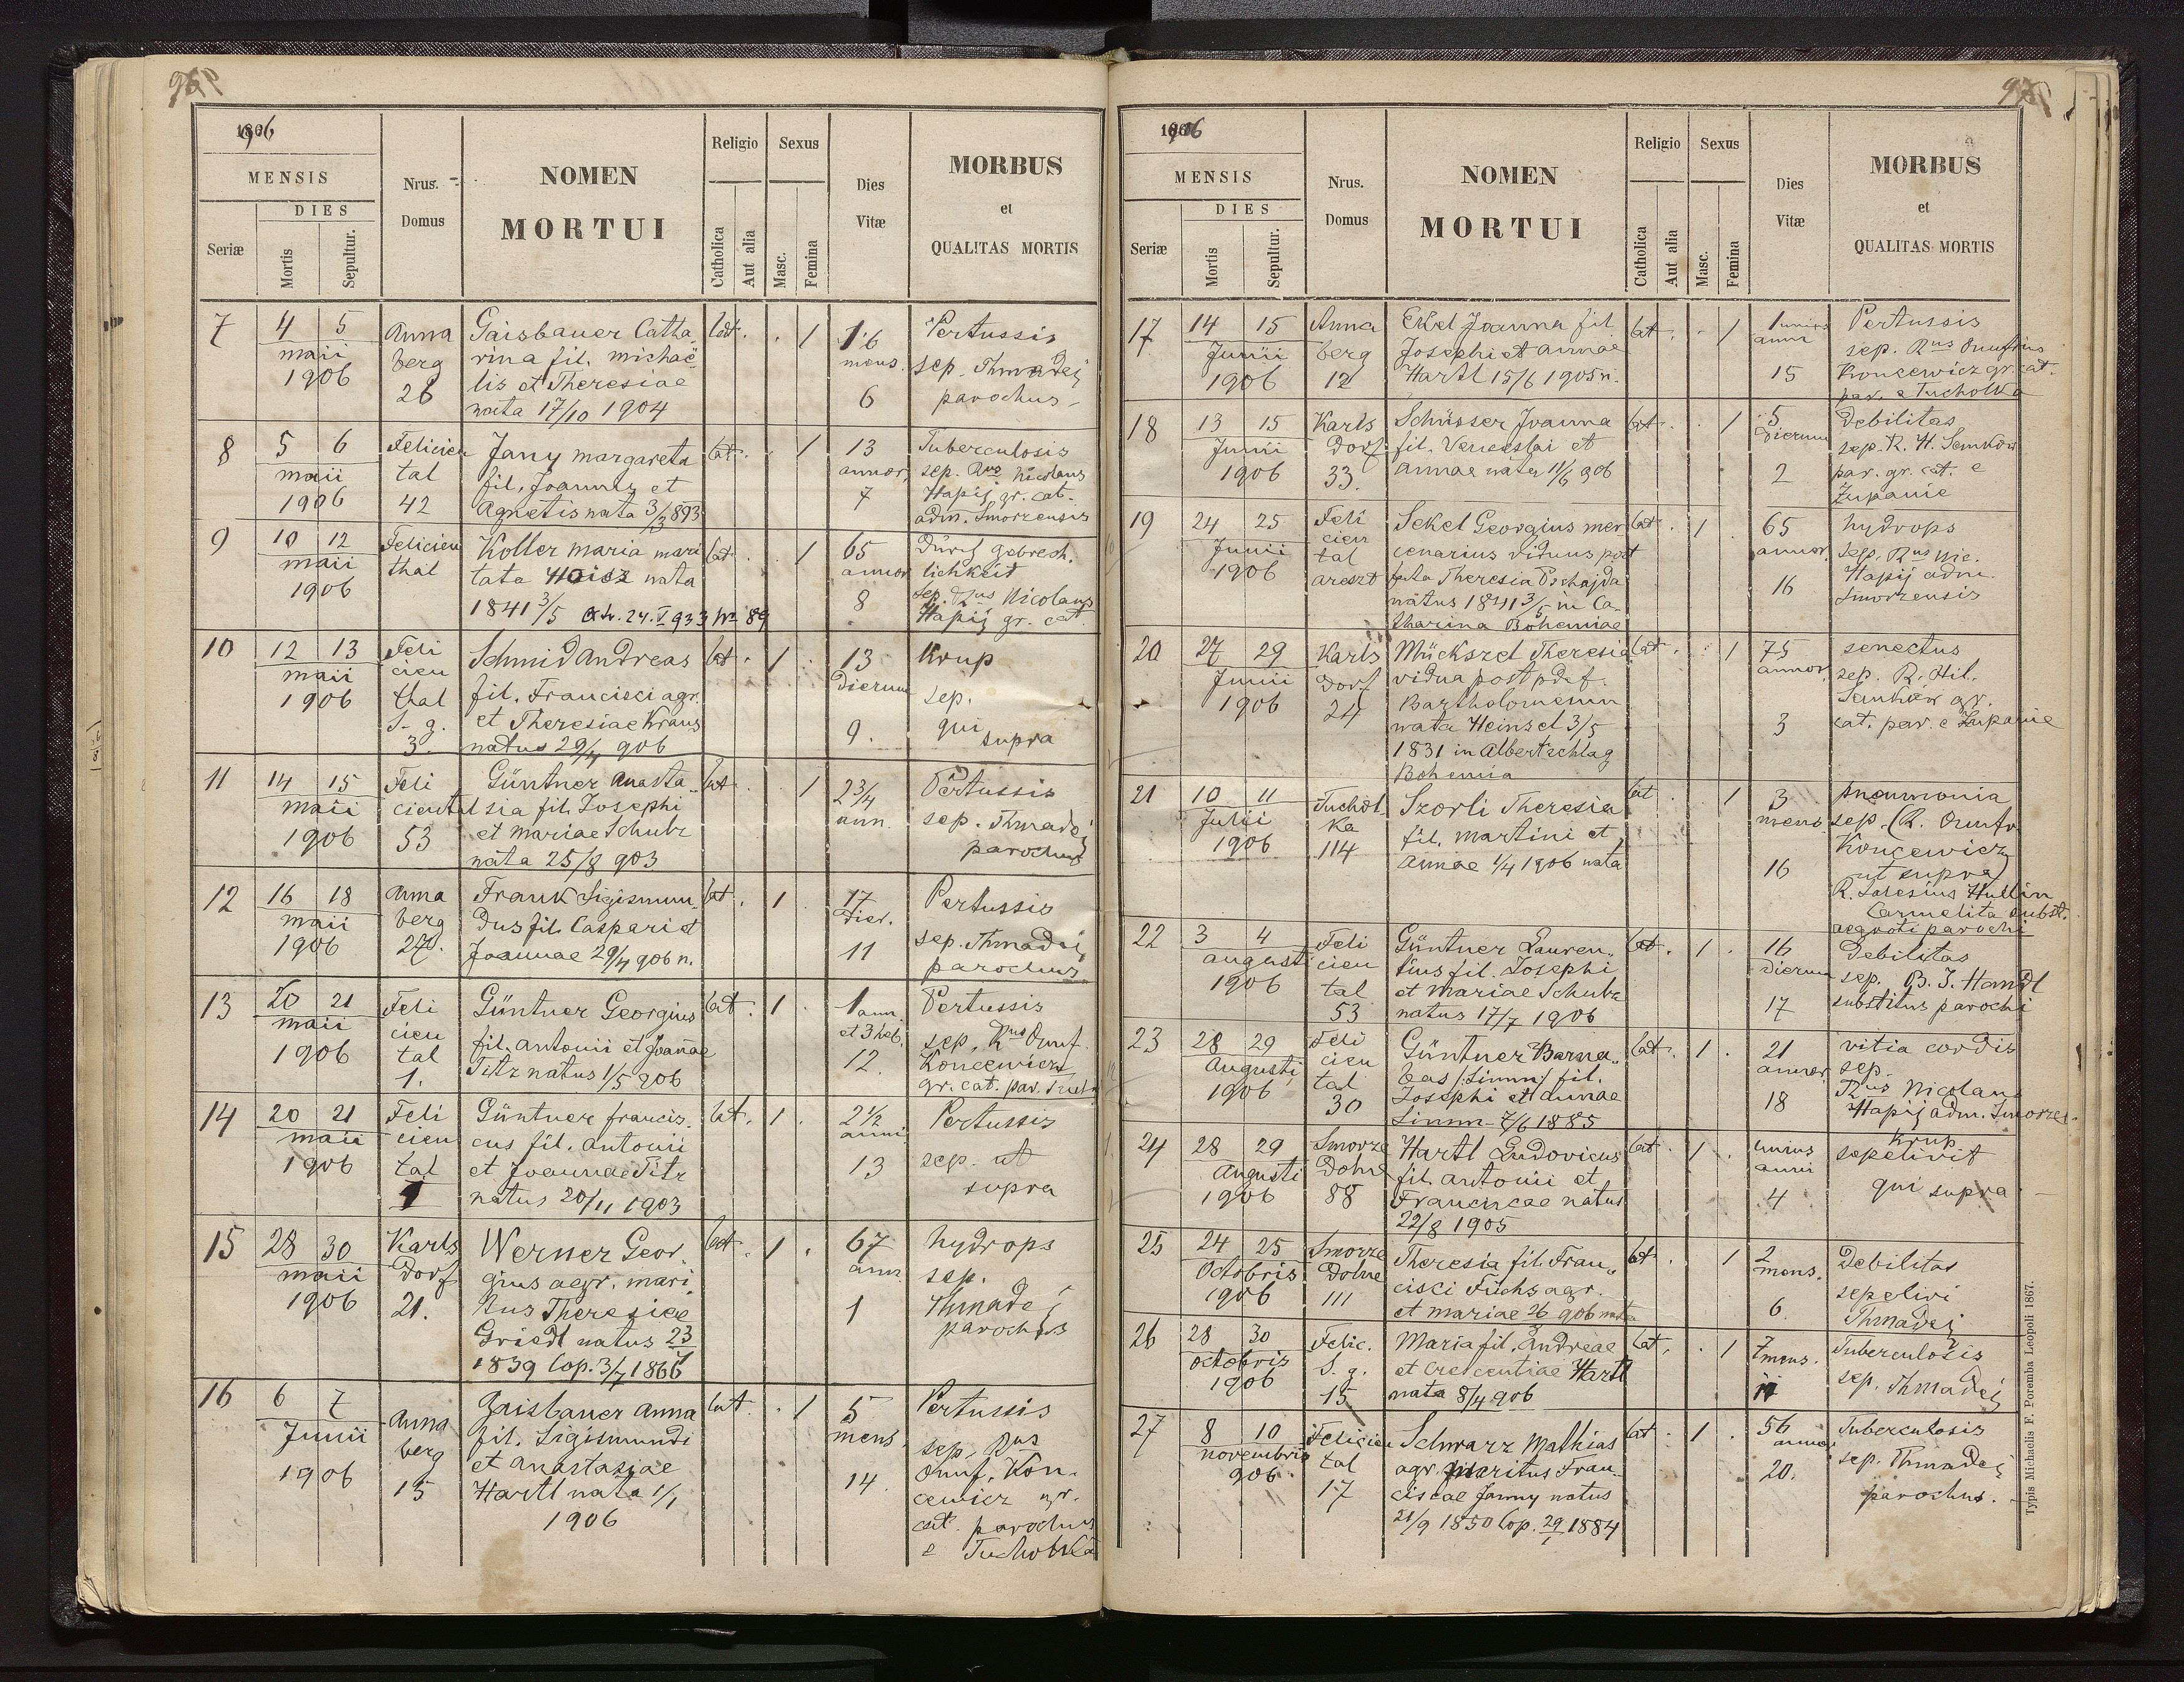 1906
MENSIS
DIES
Seriæ
Mortis
Sepultur.
Nrus.
Domus
NOMEN
MORTUI
Religio
Catholica
Aut alia
Sexus
Masc.
Femina
Dies
Vitæ
MORBUS
et
QUALITAS MORTIS
7
4 5
maii
1906
Anna
berg
28
Gaisbauer Catha
rina fil. michaë
lis et Theresiae
nata 17/10 1904
Cat.
1
16
mens.
6
Pertussis
sep. Thmadej
parochus
8
5 6
maii
1906
Felicien
tal
42
Jany margareta
fil. Joannis et
Agnetis nata 3/3 893
Cat.
1
13
annor.
7
Tuberculosis
sep. Rus Nicolaus
Hapij gr. cat.
adm. Smorzensis
9
10 12
maii
1906
Felicien
thal
Koller maria mari
tata Hoisz nata
1841 3/5 24. V 933 Nr 89
Cat.
1
65
annor
8
Durch gebrech.
lichkeit
sep. Rus Nicolaus
Hapij gr. cat.
10
12 13
maii
1906
Feli
cien
thal
S. g.
3.
Schmid Andreas
fil. Francisci agr.
et Theresiae Kraus
natus 29/4 906
Cat.
1
13
Dierum
9.
Krup
sep.
qui
supra
11
14 15
maii
1906
Feli
ciental
53
Güntner Anasta
sia fil. Josephi
et mariae Schubz
nata 25/8 903
Cat.
1
2 3/4
ann.
Pertussis
sep. Thmadej
parochus
12
16 18
maii
1906
Anna
berg
27.
Frank Sigismun
dus fil. Caspari et
Joannae 29/4 906 n.
Cat.
1
17
Dier.
11
Pertussis
sep. Thmadej
parochus
13
20 21
maii
1906
Feli
cien
tal
1.
Güntner Georgius
fil. antonii et Joannae
Titz natus 1/5 906
Cat.
1
1 ann.
et 3 heb.
12.
Pertussis
sep. Rus Onuf.
Koncewicz
gr. cat. par. Tuch
14
20 21
maii
1906
Feli
cien
tal
1
Güntner francis
cus fil. antonii
et Joannae Titz
natus 20/11 1903
Cat.
1
2 1/2
anni
13
Pertussis
sep. ut
supra
15
28 30
maii
1906
Karls
Dorf
21.
Werner Geor
gius agr. mari
tus Theresiae
Griedl natus 23/4
1839 Cop. 3/7 1866
Cat.
1
67
ann.
1
hydrops
sep.
Thmadej
parochus
16
6 7
Junii
1906
Anna
berg
15
Gaisbauer Anna
fil. Sigismundi
et Anastasiae
Hartl nata 1/1
1906
Cat.
1
5
mens.
14.
Pertussis
sep. Rus
Onuf. Kon
cewicz gr.
cat. parochus
e Tucholka
1906
MENSIS
DIES
Seriæ
Mortis
Sepultur.
Nrus.
Domus
NOMEN
MORTUI
Religio
Catholica
Aut alia
Sexus
Masc.
Femina
Dies
Vitæ
MORBUS
et
QUALITAS MORTIS
17
14 15
Junii
1906
Anna
berg
12
Ekel Joanna fil
Josephi et Annae
Hartl 15/6 1905 n.
Cat.
1
1 unius
anni
15
Pertussis
sep. Rus Onufrius
Koncewicz gr. cat.
par. e Tucholka
18
13 15
Junii
1906
Karls
Dorf
33.
Schüsser Joanna
fil. Venceslai et
annae nata 11/6 906
Cat.
1
5
Dierum
2
Debilitas
sep. R. H. Semkow
par. gr. cat. e
Zupanie
19
24 25
Junii
1906
Feli
cien
tal
areszt
Sekel Georgius mer
cenarius viduus post
fata Theresia Pschajda
natus 1841 3/5 in Ca
tharina Bohemiae
Cat.
1
65
annor.
16
hydrops
sep. Rus Nic.
Hapij adm.
Smorzensis
20
27 29
Junii
1906
Karls
Dorf
24
Mückszel Theresia
vidua post pdef.
Bartholomeum
nata Heinsel 3/5
1831 in Albertschlag
Bohemia
Cat.
1
75
annor.
3
senectus
sep. R. Hil.
Semkow gr.
cat. par. e Zupanie
21
10 11
Julii
1906
Tuchol
ka
114
Szorli Theresia
fil. Martini et
Annae 1/4 1906 nata
Cat
1
3
mens.
16
pneumonia
sep. (R. Onufr
Koncewicz
ut supra)
Hullin
Carmelita subst.
aegroti parochi
22
3 4
augusti
1906
Feli
cien
tal
53
Güntner Lauren
tius fil. Josephi
et mariae Schubz
natus 17/7 1906
Cat.
1
16
Dierum
17
Debilitas
sep. B. J. Handl
substitus parochi
23
28 29
Augusti
1906
Feli
cien
tal
30
Güntner Barna
bas /:Simm:/ fil.
Josephi et annae
Simm 7/6 1885
Cat.
1
21
annor.
18
vitia cordis
sep.
Rus Nicolaus
Hapij adm. Smorzen.
24
28 29
Augusti
1906
Smorze
Dolne
88
Hartl Ludovicus
fil. antonii et
Franciscae natus
22/8 1905
Cat.
1
unius
anni
4
Krup
sepelivit
qui supra
25
24 25
Octobris
1906
Smorze
Dolne
111
Theresia fil. Fran
cisci Fuchs agr.
et mariae 26 906 nata
Cat.
1
2
mens.
6.
Debilitas
sepelivi
Thmadej
26
28 30
octobris
1906
Felic.
S. g.
15
Maria fil. Andreae
et Crescentiae Hartl
nata 8/4 906
Cat.
1
7 mens.
11
Tuberculosis
sep. Thmadej
27
8 10
novembris
906
Felicien
tal
17
Schwarz Mathias
agr. maritus Fran
ciscae Janny natus
21/9 1850 Cop. 29/1 1884
Cat.
1
56
annor
20.
Tuberculosis
sep. Thmadej
parochus.
Typis Michaelis F. Poremba Leopoli 1867.